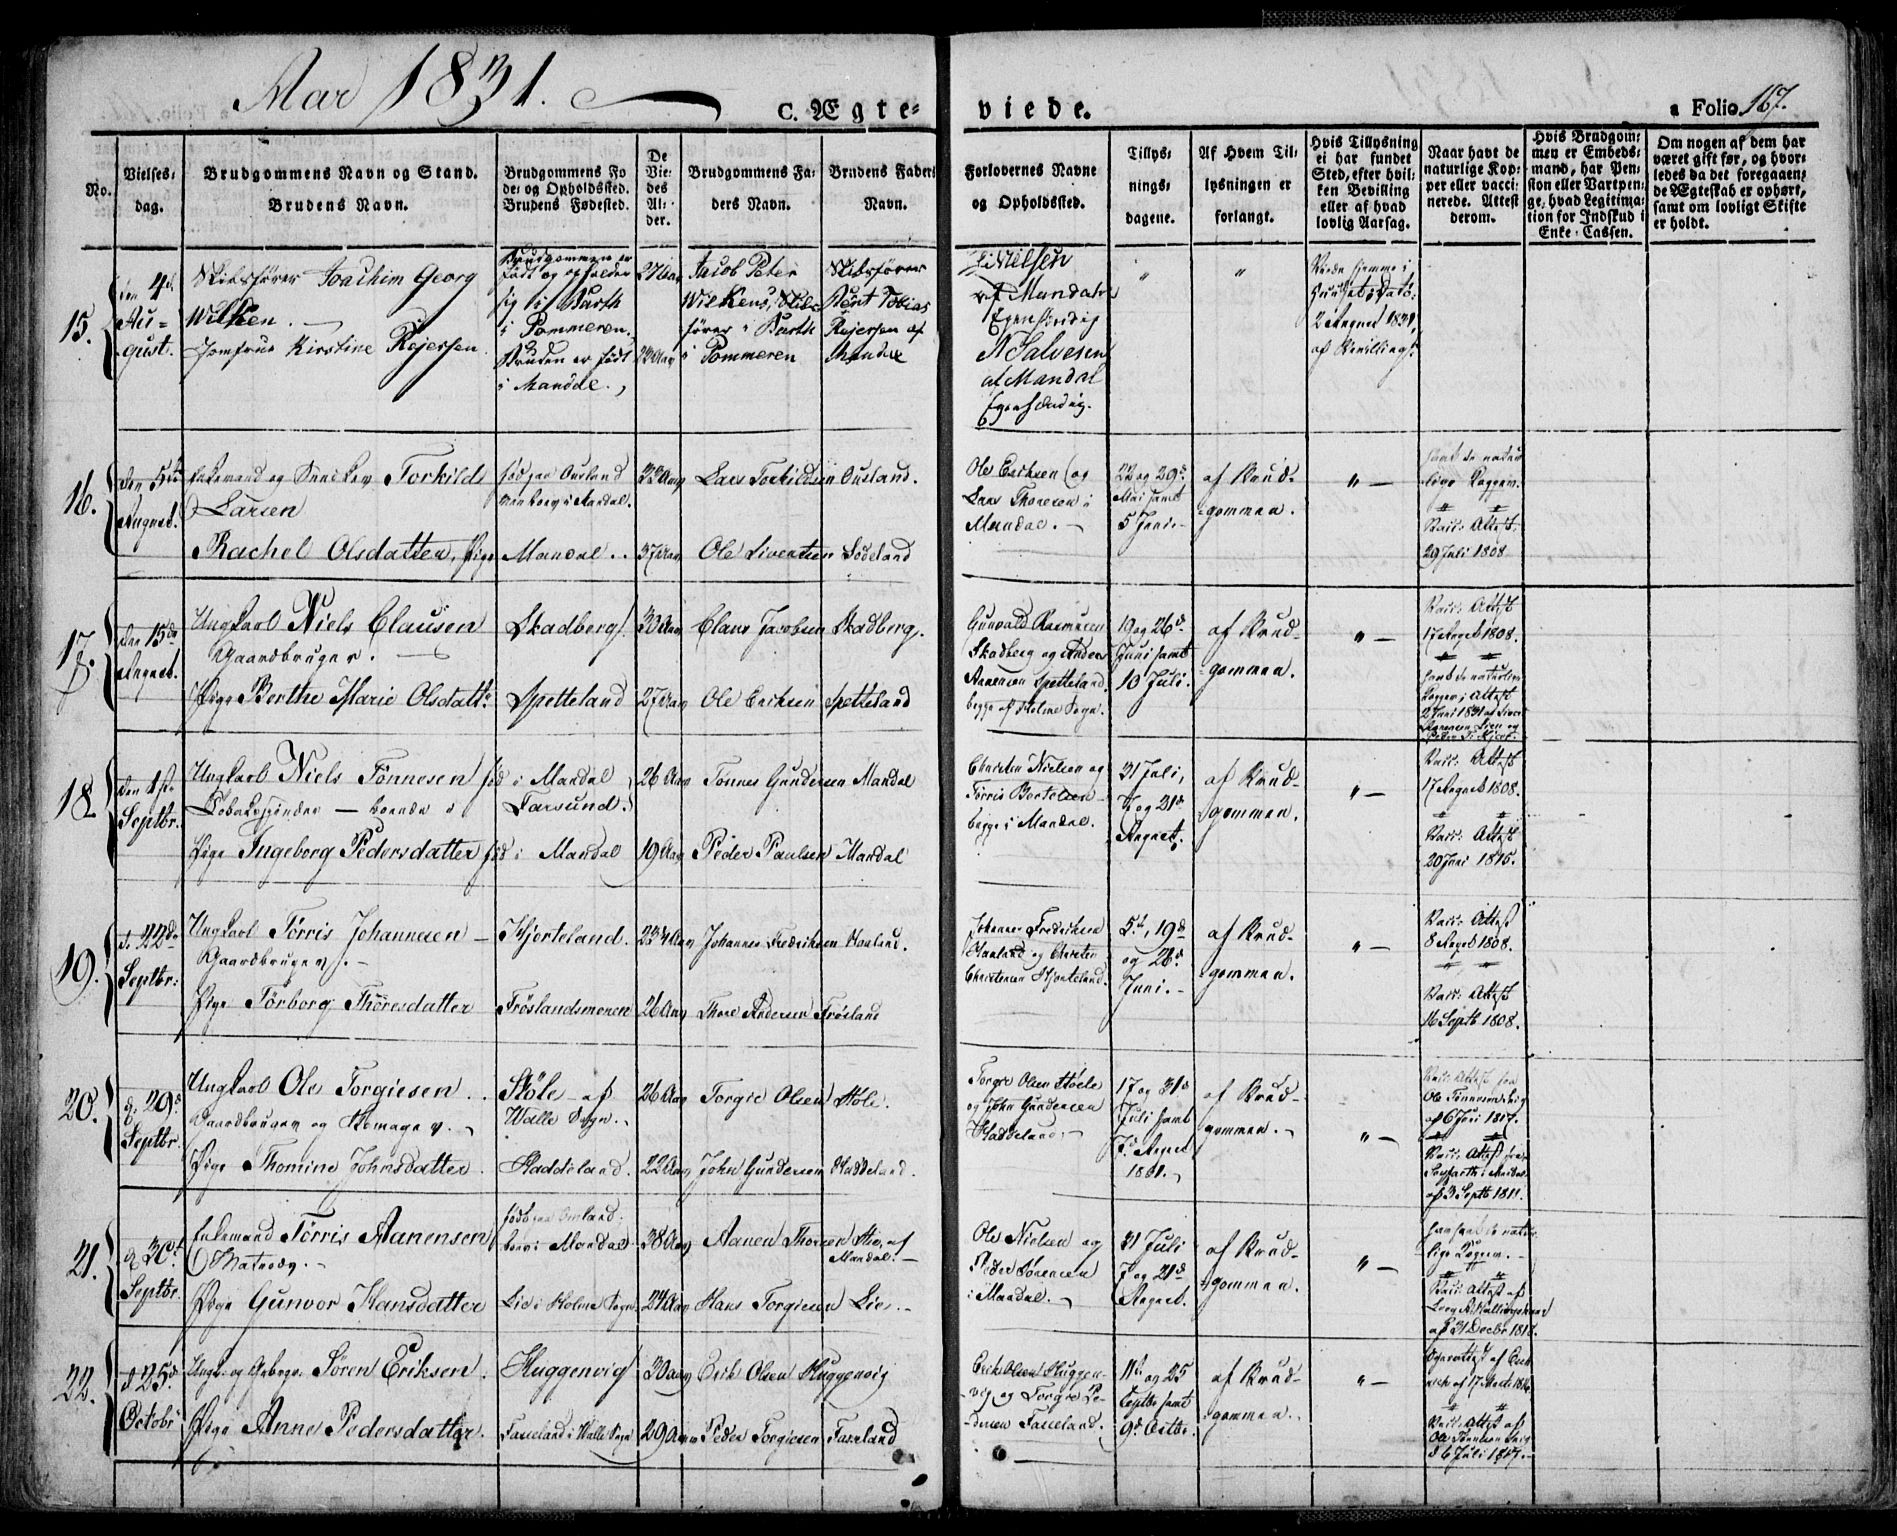 Aar 1831.
C. Ægte-
viede.
a Folio 167.
No.
Vielses-
dag.
Brudgommens Navn og Stand.
Brudens Navn.
Brudgommens Fø
de- og Opholdssted.
Brudens Fødested.
De
Vie-
des
Al-
der.
Brudgommens Fa-
ders Navn.
Brudens Faders
Navn.
Forlovernes Navne
og Opholdssted.
Tillys-
nings-
dagene.
Af Hvem Til-
lysningen er
forlangt.
Hvis Tillysning
ei har fundet
Sted, efter hvil-
ken Bevilling
eller af hvad
lovlig Aarsag.
Naar havt de
naturlige Kop-
per eller vacci-
nerede. Attest
derom.
Hvis Brudgom-
men er Embeds-
mand, har Pen-
sion eller Vartpen-
ge, hvad Legitima-
tion for Indskud i
Enke-Cassen.
Om nogen af dem har
været gift før, og hvor-
ledes da det foregaaen-
de Ægteskab er ophørt,
samt om lovligt Skifte
er holdt.
15.
den 4de
Au-
gust.
Skibsfører Joachim Georg
Wilken.
Jomfrue Kirstine Rejersen
Brudgommen er
født og opholder
sig i Barth
i Pommeren.
Bruden er født
i Mandal.
27 Aar
Jacob Peter
Wilkens, Skibs-
fører i Barth
i Pommeren
Skibsfører
Bent Tobias
Reiersen af
Mandal
Nielsen
af Mandal
Egenhændig
A Salvesen
af Mandal
Egenhændig.
"
"
Viede hjemme i
Huuset, Dat:
2 August 1831,
af Bevilling.
16.
den 5te
August.
Enkemand og Snedker Torkild
Larsen
Rachel Olsdatter, Pige
fød paa Ousland
boer i Mandal.
Mandal.
33 Aar
37 Aar
Lars Torkildsen
Ole Sivertsen
Ousland.
Sodeland
Ole Erichsen og
Lars Thoresen i
Mandal.
22 og 29d
Mai samt
5 Juni.
af Brud-
gommen.
"
havt de natur
lige Kopper.
Vacc: Attest
29 Juli 1808
17.
den 15de
August.
Ungkarl Niels Clausen
Gaardbruger.
Pige Berthe Marie Olsdatt.
Skadberg.
Spetteland
30 Aar
27 Aar
Claus Jacobsen
Ole Erichsen
Skadberg.
Spetteland
Gunvald Rasmusen
Skadberg og Anders
Aanensen Spetteland
begge af Holme Sogn.
19 og 26d
Juni samt
10 Juli.
af Brud-
gommen.
"
Vacc: Attest
17 August 1808.
havt de naturlige
Kopper, Attest
2 Juni 1831
18.
den 1ste
Septbr.
Ungkarl Niels Tönnesen
Tobakspinder – boende i
Pige Ingeborg Pedersdatter
fød i Mandal
Farsund.
fød i Mandal
26 Aar
19 Aar
Tönnes Gundersen
Peder Paulsen
Mandal
Mandal
Christen Nielsen og
Törris Bertelsen
begge i Mandal.
31 Juli,
7 og 21d
August.
af Brud-
gommen.
"
Vacc: Attest
17 August 1808.
Vacc: Attest
20 Juni 1815.
19.
d. 22de
Septbr:
Ungkarl Törris Johannesen
Gaardbruger.
Pige Törborg Thoresdatter
Hjorteland.
Fröslandsmonen
23¾ Aar
26 Aar
Johannes Fredriksen
Thore Andersen
Haaland.
Frösland
Johannes Fredriksen
Haaland og Christen
Christensen Hjorteland.
5te, 19d
og 26d
Juni.
af Brud-
gommen.
"
Vacc: Attest
8 August 1808.
Vacc: Attest
16 Septb 1808.
20.
d. 29d
Septbr.
Ungkarl Ole Torgiesen
Gaardbruger og Skomager.
Pige Thomine Johnsdatter.
Støle af
Halle Sogn.
Haddeland.
26 Aar
22 Aar
Torgie Olsen
John Gundersen
Støle.
Haddeland.
Torgie Olsen Støle
og John Gundersen
Haddeland.
17 og 31d
Juli samt
7d August
1831.
af Brud-
gommen.
"
Vacc: Attest fra
Ole Tönnesen
af 6 Juni 1817.
Vacc: Attest fra
af 3 Septb 1811.
21.
d. 30te
Septbr.
Enkemand Törris Aanensen
Matros.
Pige Gunvor Hansdatter
fød paa Omland.
boer i Mandal
Lie i Holme Sogn
38 Aar
24 Aar
Aanen Thoresen
Hans Torgiesen
Ho, af
Mandal.
Lie.
Ole Nielsen og
Peder Sörensen
i Mandal.
31 Juli
7 og 21d
August.
af Brud-
gommen.
"
han havt de natur-
lige Kopper.
Vacc: Attest af
af 31 Decbr 1818.
22.
d. 25d
Octobr
Ungk. og Gbrgr. Sören Eriksen.
Pige Anne Pedersdatter.
Huggenvig
Faseland i Halle Sogn
30 Aar
29 Aar
Erik Olsen
Peder Torgiesen
Huggenvig
Faseland
Erik Olsen Huggen-
vig og Torgie Pe-
dersen Faseland.
11te og 25
Septbr samt
9d Octbr.
af Brud-
gommen.
"
af 17 Marts 1816.
Vacc: Attest af
Ole Tönnesen
d. 6 Juli 1817.